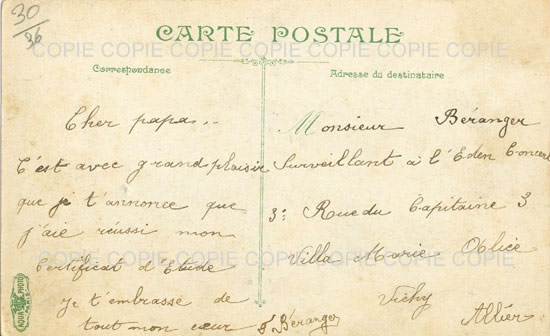 30
26
CARTE POSTALE
COPIE COPIE COPIE COPIE COPIE COPIE
Correspondance
Adresse du destinataire
Cher papa..
C'est avec grand plaisir
que je t'annonce que
j'aie réussi mon
Certificat d'Etude
je t'embrasse de
tout mon cœur
Béranger
Monsieur Béranger
Surveillant à l'Eden Concert
3: Rue du Capitaine 3
Villa Marie
Vichy
Allier
COPIE COPIE COPIE COPIE COPIE COPIE
COPIE COPIE COPIE COPIE COPIE COPIE
PHOTO
PARIS